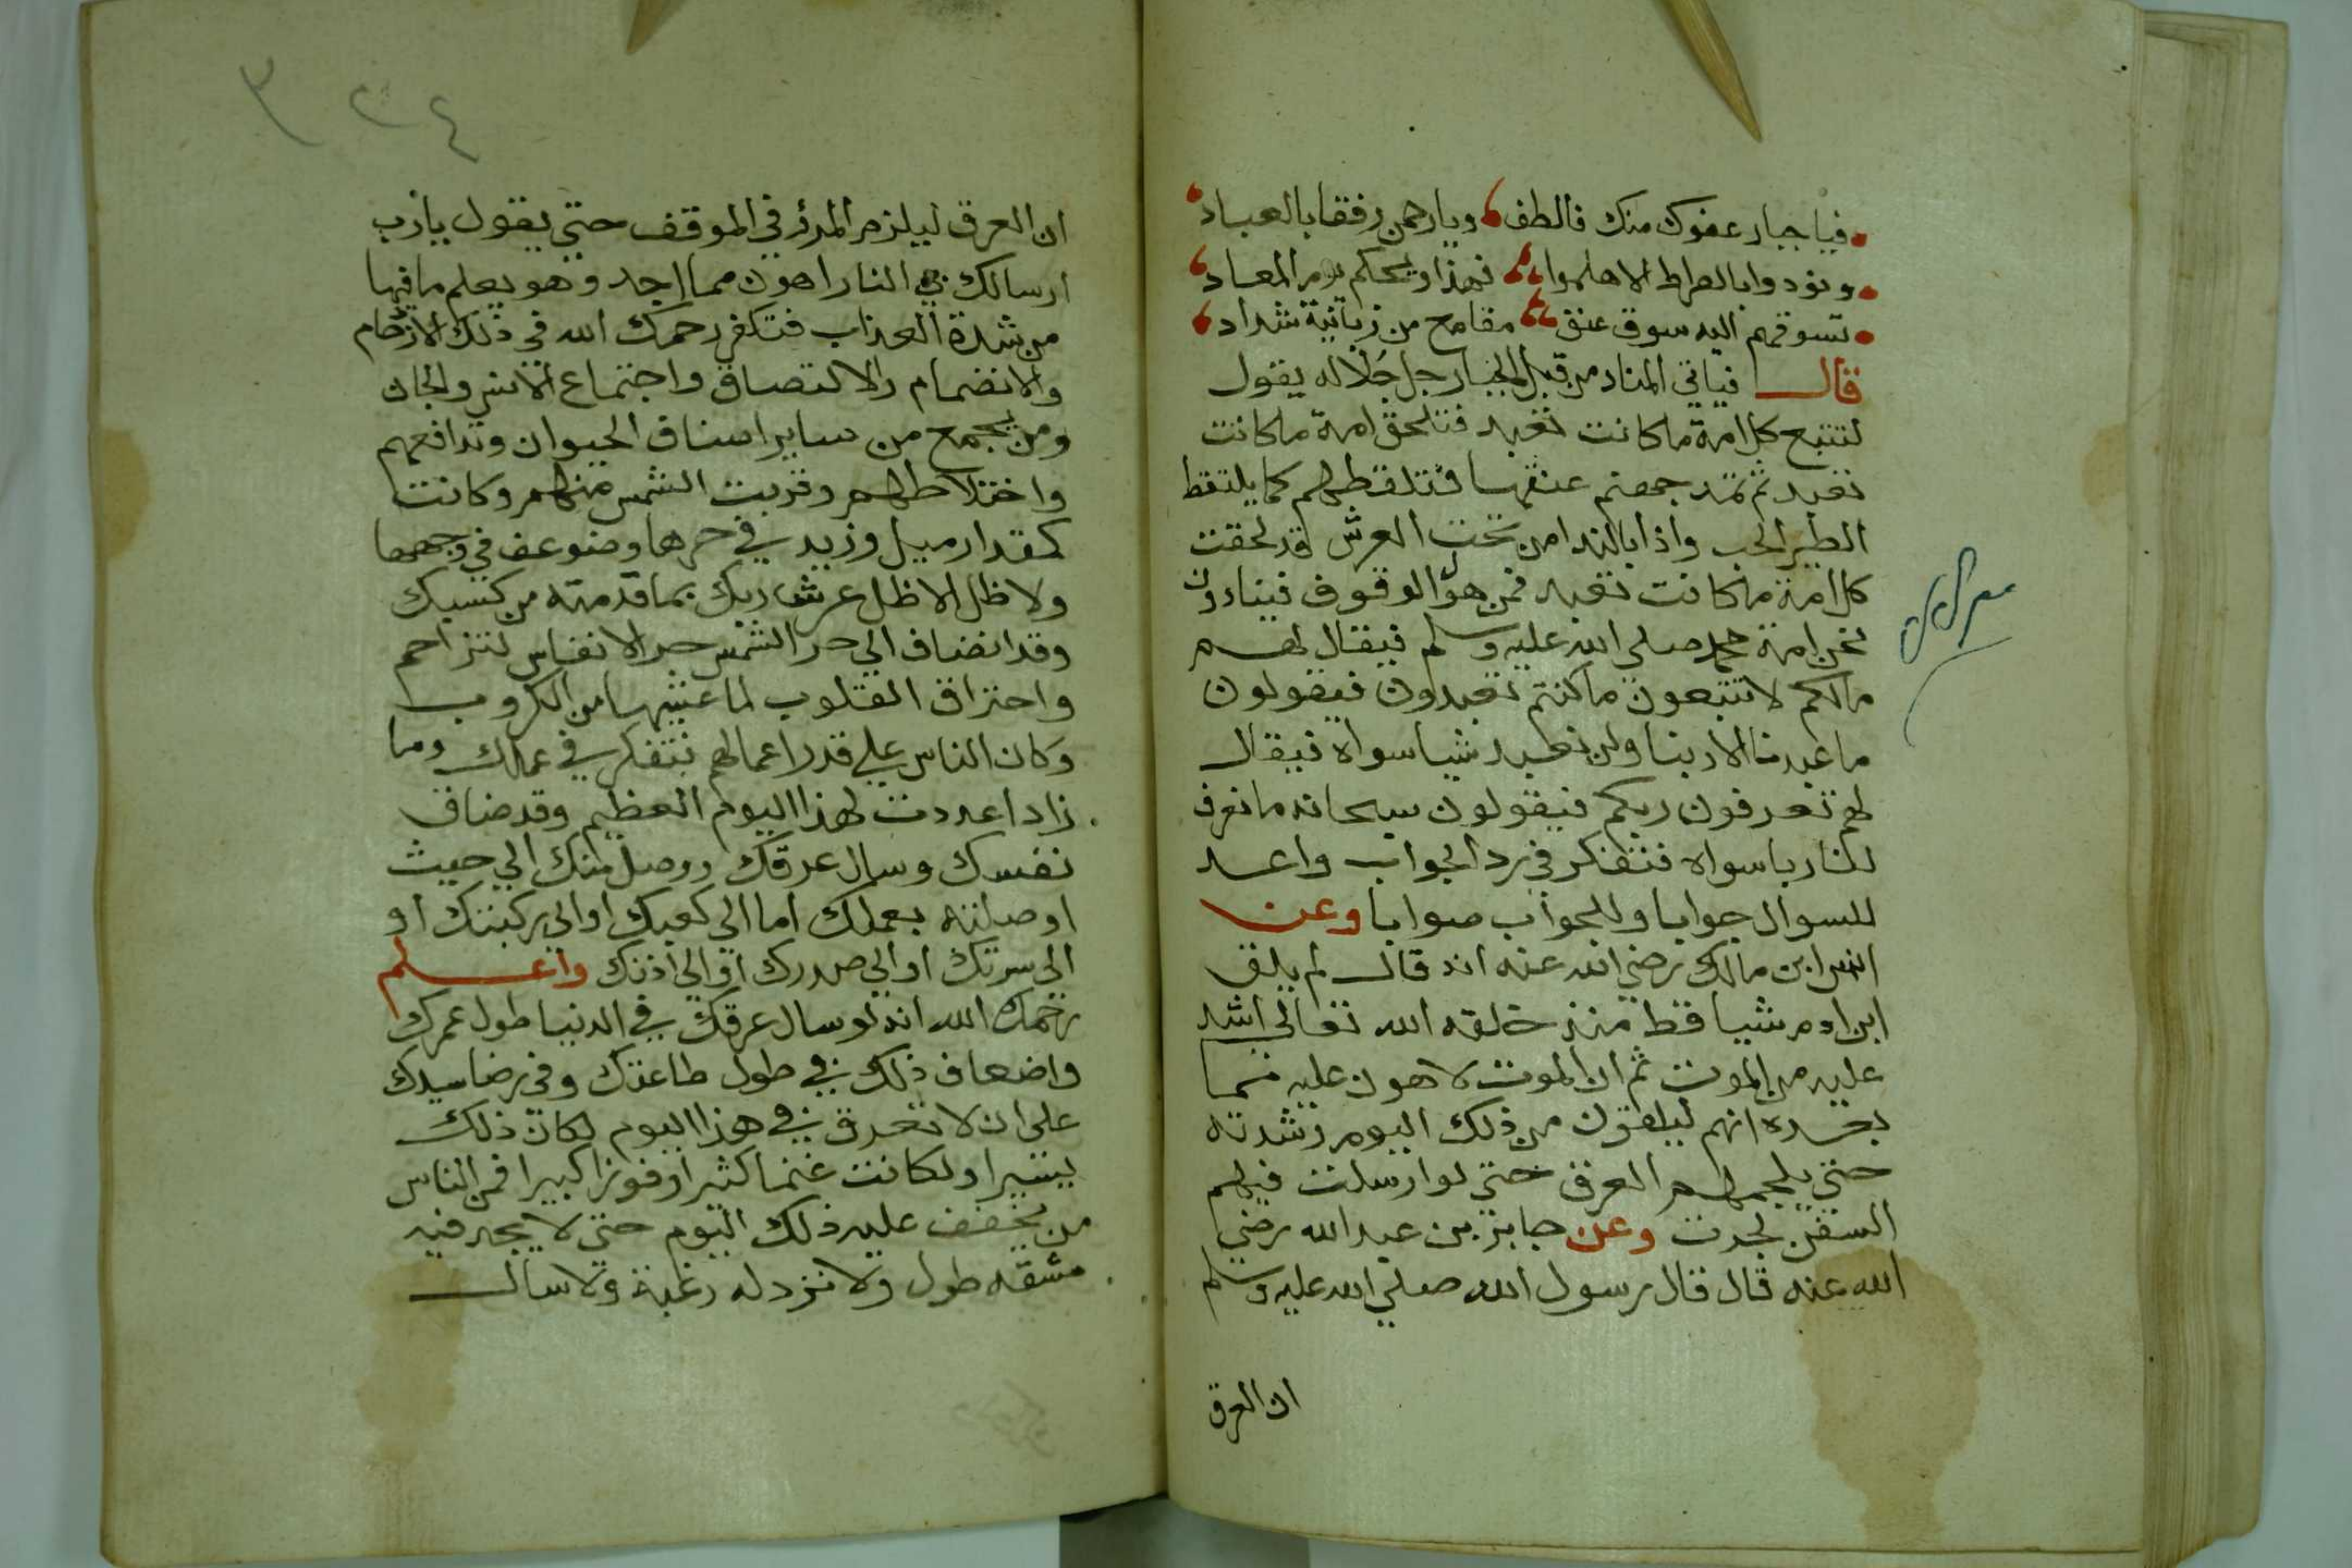 فيا جبار عفوك منك فالطف ويا رحمن رفقا بالعباد
ونودوا بالصراط الا هلموا فهذا ويحكم يوم المعاد
تسوقهم اليه سوق عنق مقامع من زبانية شداد
قال فياتي المناد من قبل الجبار جل جلاله يقول
لتتبع كل امة ما كانت تعبد فتلحق امة ما كانت
تعبد ثم تمد جهنم عنقها فتلقطهم كما يلتقط
الطير الحب واذا بالندا من تحت العرش قد لحقت
كل امة ما كانت تعبد فمن هؤلا الوقوف فينادون
نحن امة محمد صلى الله عليه وسلم فيقال لهم
مالكم لا تتبعون ما كنتم تعبدون فيقولون
ما عبدنا الا ربنا ولن نعبد شيا سواه فيقال
لهم تعرفون ربكم فيقولون سبحانه ما نعرف
لنا ربا سواه فتفكر في رد الجواب واعد
للسوال جوابا وللجواب صوابا وعن
انس ابن مالك رضي الله عنه انه قال لم يلق
ابن ادم شيا قط منذ خلقه الله تعالى اشد
عليه من الموت ثم ان الموت لاهون عليه مما
بعده انهم ليلقون من ذلك اليوم وشدته
حتي يلجمهم العرق حتي لو ارسلت فيهم
السفن لجرت وعن جابر بن عبد الله رضي
الله عنه قال قال رسول الله صلي الله عليه وسلم
ان العرق
٣٢٤
ان العرق ليلزم المرؤ في الموقف حتي يقول يا رب
ارسالك بي النار اهون مما اجد وهو يعلم ما فيها
من شدة العذاب فتفكر رحمك الله في ذلك الازدحام
والانضمام والالتصاق واجتماع الانس والجان
ومن يجمع من ساير اصناف الحيوان وتدافعهم
واختلاطهم وقربت الشمس منهم وكانت
كمقدار ميل وزيد في حرها وضوعف في وهجها
ولا ظل الا ظل عرش ربك بما قدمته من كسبك
وقد انضاف الي حر الشمس حر الانفاس لتزاحم
واحتراق القلوب لما غشيها من الكروب
وكان الناس علي قدر اعمالهم فتفكر في عملك وما
زاد اعددت لهذا اليوم العظيم وقد ضاق
نفسك وسال عرقك ووصل منك الي حيث
اوصلته بعملك اما الي كعبك او الي ركبتك او
الي سرتك او الي صدرك او الي اذنك واعلم
رحمك الله انه لو سال عرقك في الدنيا طول عمرك
واضعاف ذلك في طول طاعتك وفي رضا سيدك
على ان لا تعرق في هذا اليوم لكان ذلك
يسيرا ولكانت غنما كثيرا وفوزا كبيرا فمن الناس
من يخفف عليه ذلك اليوم حتي لا يجد فيه
مشقه طول ولا نزد له رغبة ولا سال